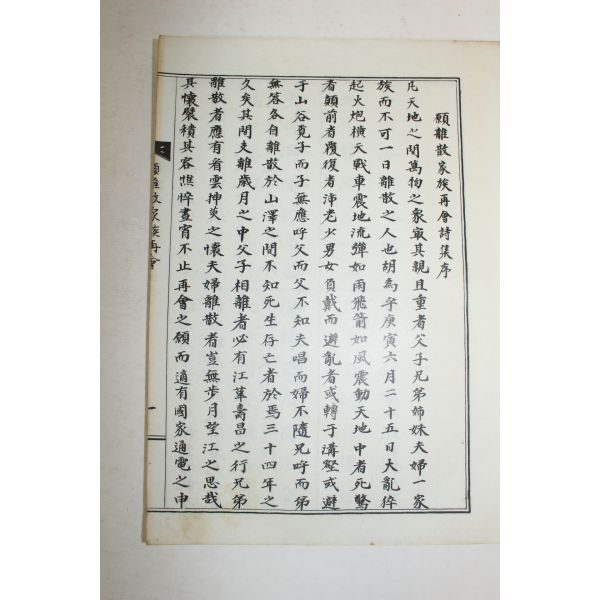 願離散家族再會詩集序
凡天地之間萬物之衆寂其親且重者父子兄弟姉妹夫婦一家
族而不可一日離散之人也胡為乎庚寅六月二十五日大亂猝
起火炮横天戰車震地流彈如雨飛箭如風震動天地中者死驚
者顛前者覆復者沛老少男女負戴而避亂者或轉于溝壑或避
于山谷覓子而子無應呼父而父不知夫唱而婦不隨兄呼而弟
無答各自離散於山澤之間不知死生存亡者於焉三十四年之
久矣其間支離歲月之中父子相離者必有江革壽昌之行兄弟
離散者應有看雲抻炗之懷夫婦離散者豈無步月望江之思哉
其懷襞積其容憔悴晝宵不止再會之願而適有國家通電之申
願離散家族再會
一